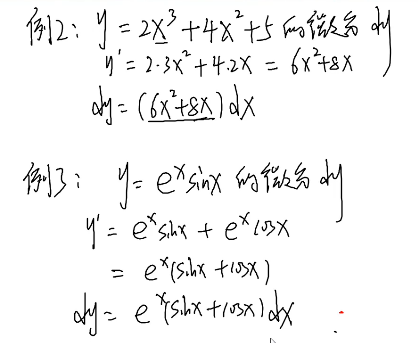 例2: y = 2x³+4x²+5 的微分 dy
y' = 2·3x²+4·2x = 6x²+8x
dy = (6x²+8x)dx
例3: y = eˣsinx 的微分 dy
y' = eˣsinx + eˣcosx
= eˣ(sinx+cosx)
dy = eˣ(sinx+cosx)dx